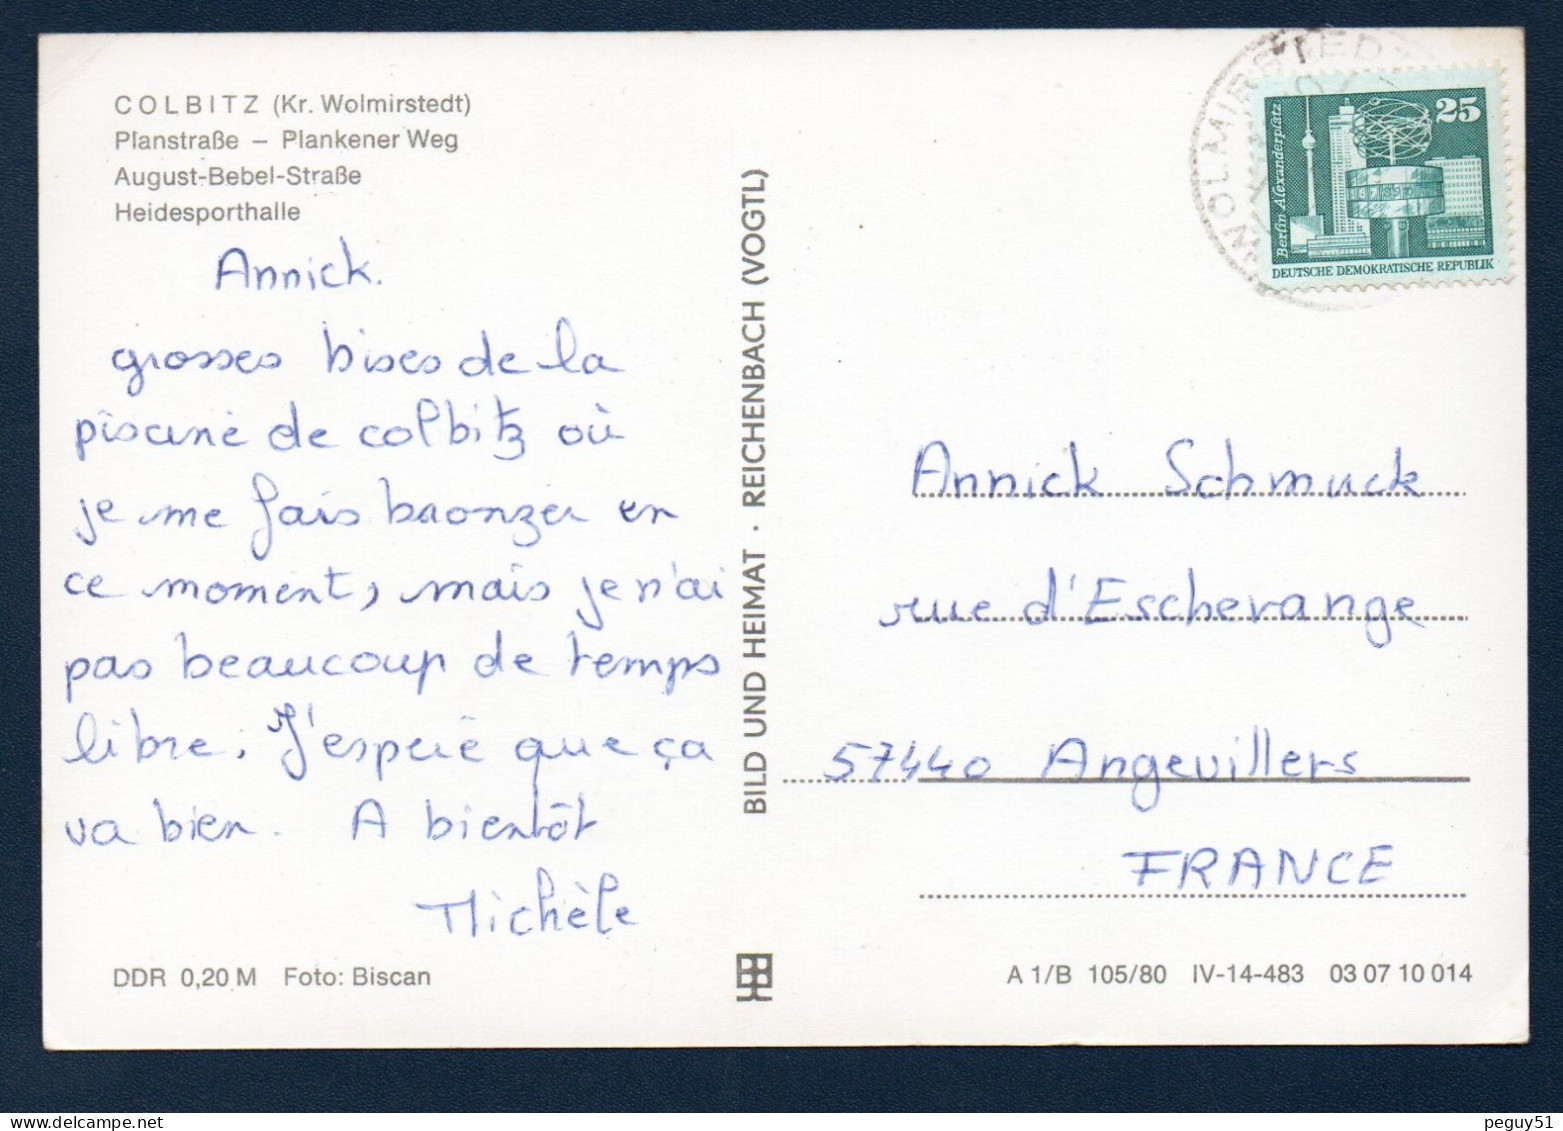 COLBITZ (Kr. Wolmirstedt)
Planstraße – Plankener Weg
August-Bebel-Straße
Heidesporthalle
Annick.
grosses bises de la
piscine de colbitz où
je me fais bronzer en
ce moment, mais je n'ai
pas beaucoup de temps
libre. J'espère que ça
va bien. A bientôt
Michèle
DDR 0,20 M Foto: Biscan
BILD UND HEIMAT · REICHENBACH (VOGTL)
WOLMIRSTEDT
25
Berlin-Alexanderplatz
DEUTSCHE DEMOKRATISCHE REPUBLIK
Annick Schmuck
rue d'Escherange
57440 Angevillers
FRANCE
A 1/B 105/80 IV-14-483 03 07 10 014
peguy51